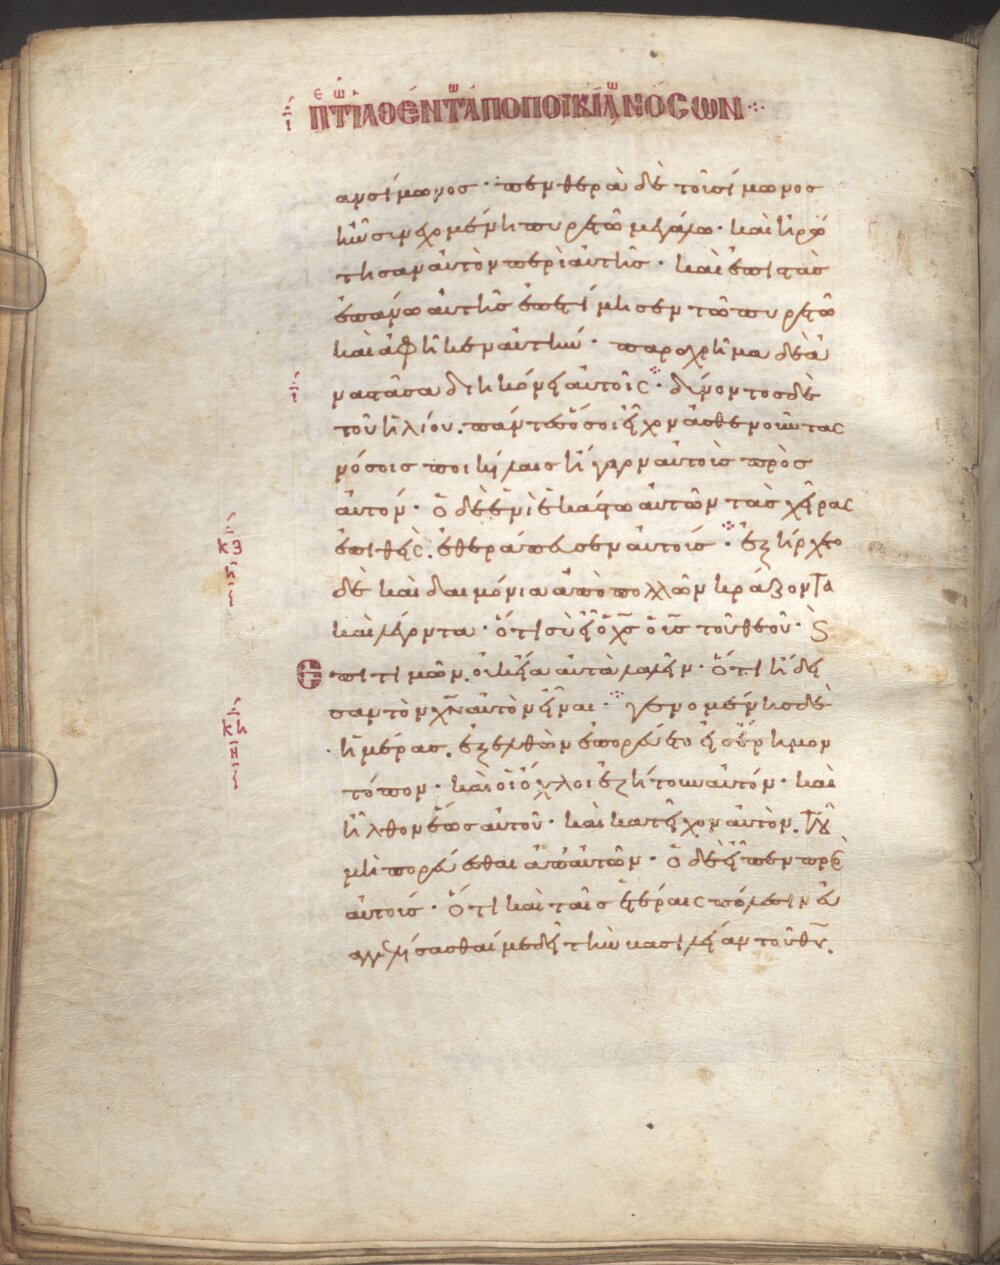 ανσίμωνος· πενθερὰ δὲ τοῦσίμωνος
ἦν συνεχομένη πυρετῶ μεγάλω· καὶ ἠρώ
τησαν αὐτὸν περὶ αὐτῆς· καὶ ἐπιστὰς
ἐπάνω αὐτῆς ἐπετίμησεν τῶ πυρετῶ
καὶ ἀφῆκεν αὐτήν· παραχρῆμα δὲ ἀ
ναστᾶσα διηκόνει αὐτοῖς· δύνοντος δὲ
τοῦ ἡλίου. πάντες ὅσοι εἶχον ἀσθενοῦντας
νόσοις ποικίλαις ἤγαγον αὐτοὺς πρὸς
αὐτόν· ὁ δὲ ἑνὶ ἑκάστω αὐτῶν τὰς χεῖρας
ἐπιθεὶς. ἐθεράπευσεν αὐτούς· ἐξήρχετο
δὲ καὶ δαιμόνια ἀπὸ πολλῶν κράζοντα
καὶ λέγοντα· ὅτι σὺ εἶ ὁ χς ὁ υς τοῦ θεοῦ· ϗ
ἐπιτιμῶν. οὐκ εἴα αὐτὰ λαλεῖν· ὅτι ἤδει
σαν τὸν χν αὐτὸν εἶναι· γενομένης δὲ
ἡμέρας. ἐξελθὼν ἐπορεύετο εἰς ἔρημον
τόπον· καὶ οἱ ὄχλοι ἐζήτουν αὐτόν· καὶ
ἦλθον ἕως αὐτοῦ· καὶ κατεῖχον αὐτὸν. τοῦ
μὴ πορεύεσθαι ἀπ' αὐτῶν· ὁ δὲ εἶπεν πρὸς
αὐτούς· ὅτι καὶ ταῖς ἑτέραις πόλεσιν εὐ
αγγελίσασθαί με δεῖ τὴν βασιλείαν τοῦ θυ.